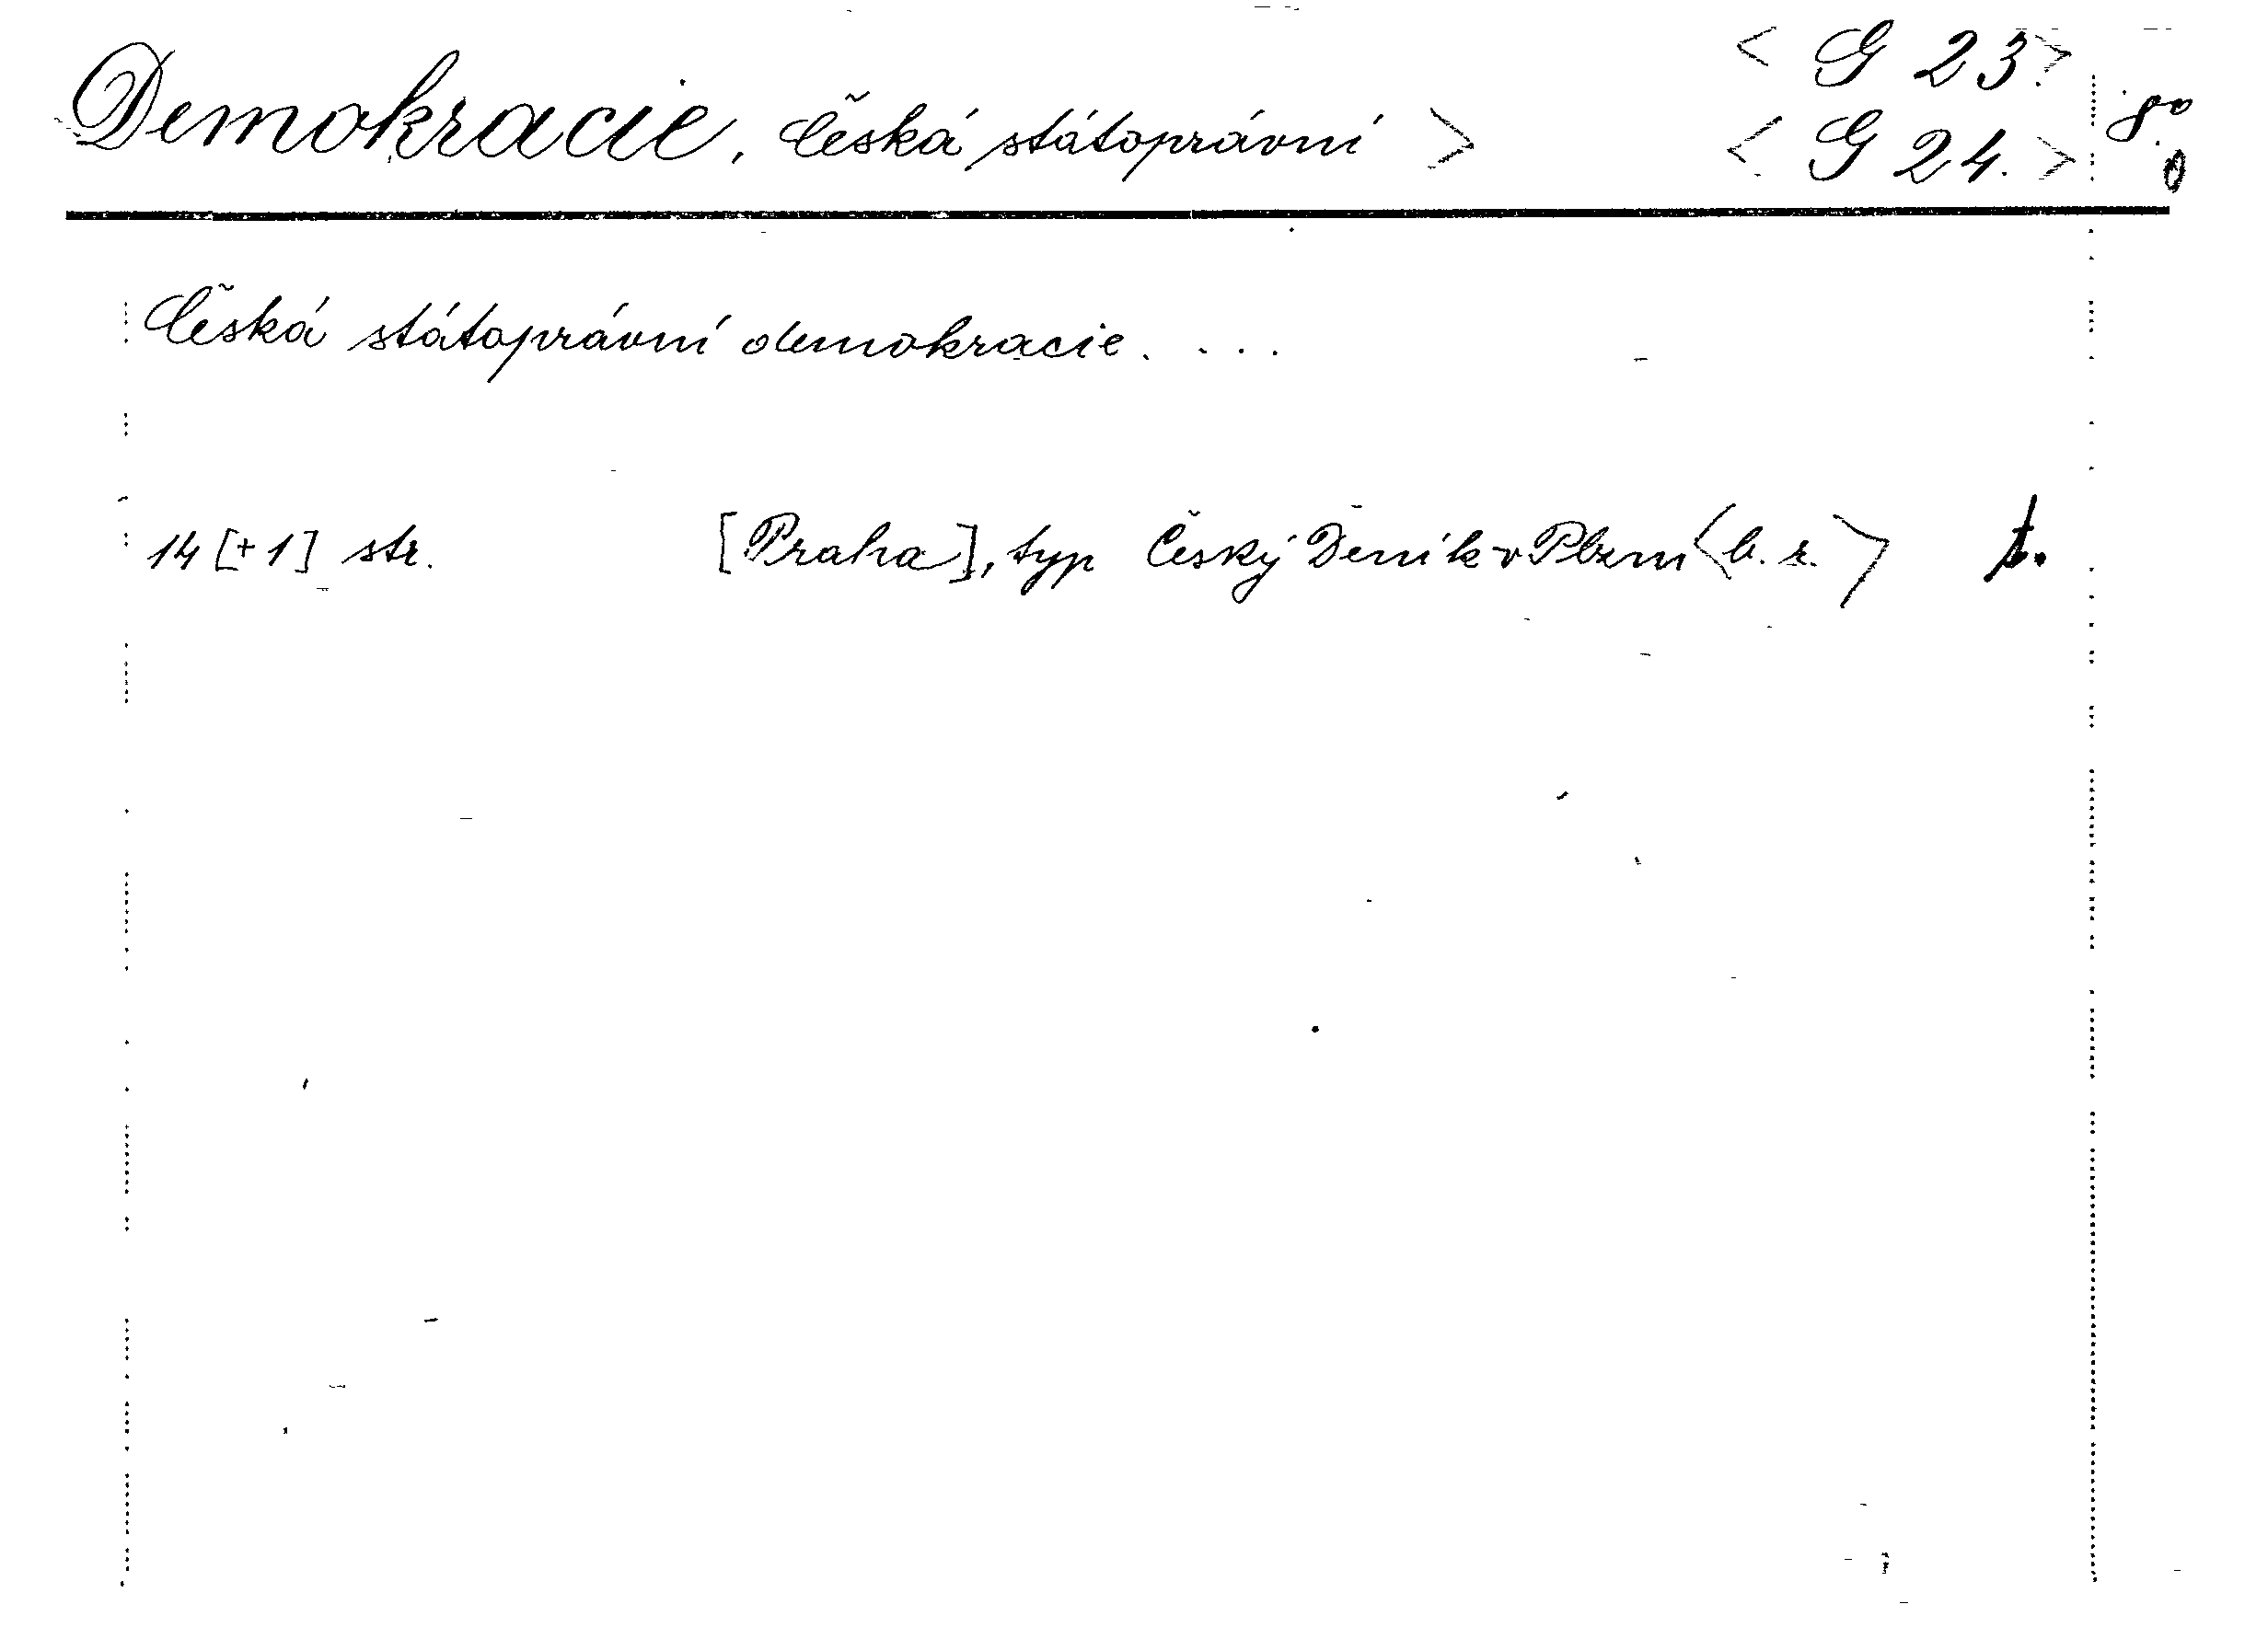 Demokracie, Česká státoprávní > < G 23. > 8°
< G 24. >
Česká státoprávní demokracie. ...
14 [+1] str. [Praha], typ Český Deník v Plzni <b. r.> t.